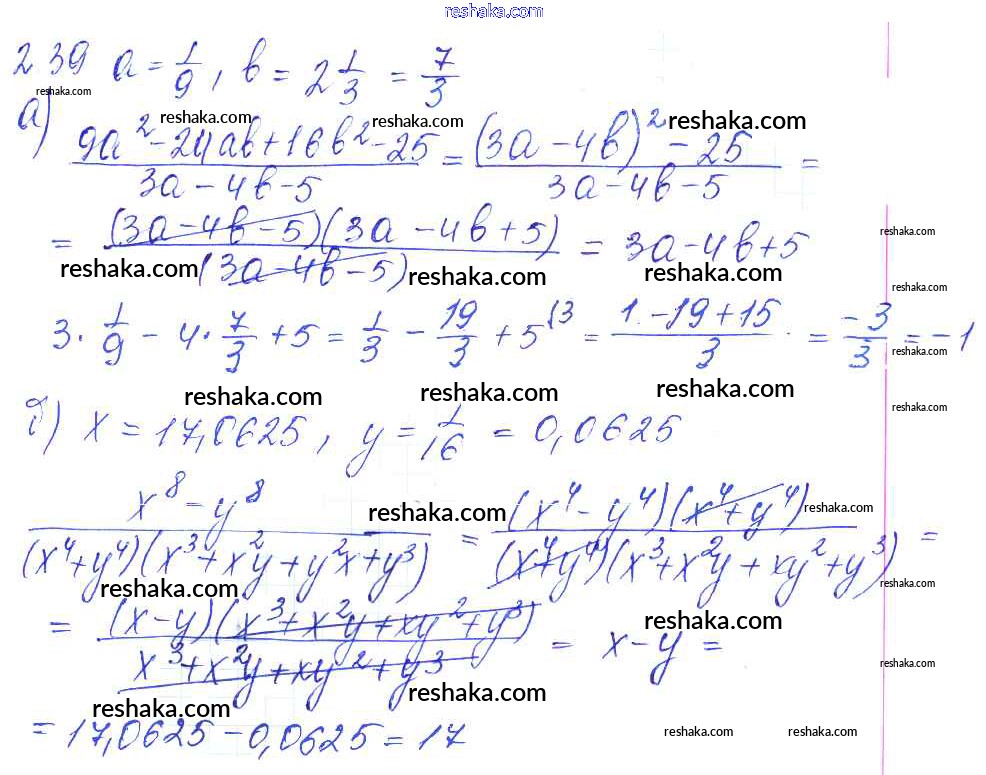 reshaka.com
239 a = 1/9, b = 2 1/3 = 7/3
reshaka.com
а) reshaka.com reshaka.com reshaka.com
(9a² - 24ab + 16b² - 25)/(3a - 4b - 5) = ((3a - 4b)² - 25)/(3a - 4b - 5) =
= ((3a - 4b - 5)(3a - 4b + 5))/((3a - 4b - 5)) = 3a - 4b + 5
reshaka.com
reshaka.com reshaka.com reshaka.com
reshaka.com
3 · 1/9 - 4 · 7/3 + 5 = 1/3 - 19/3 + 5^(3 = (1 - 19 + 15)/3 = -3/3 = -1
reshaka.com
reshaka.com reshaka.com reshaka.com
reshaka.com
б) x = 17,0625, y = 1/16 = 0,0625
(x⁸ - y⁸)/((x⁴ + y⁴)(x³ + x²y + y²x + y³)) = ((x⁴ - y⁴)(x⁴ + y⁴))/((x⁴ + y⁴)(x³ + x²y + xy² + y³)) =
reshaka.com reshaka.com
reshaka.com reshaka.com
= ((x - y)(x³ + x²y + xy² + y³))/(x³ + x²y + xy² + y³) = x - y =
reshaka.com
reshaka.com
reshaka.com reshaka.com
= 17,0625 - 0,0625 = 17
reshaka.com reshaka.com